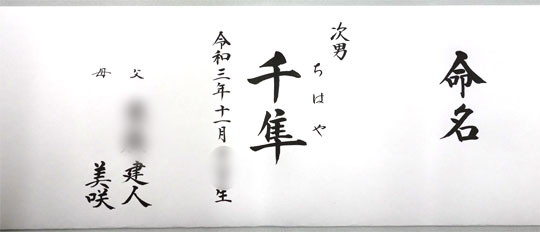 命名
次男
千隼
ちはや
令和三年十一月 生
父 建人
母 美咲